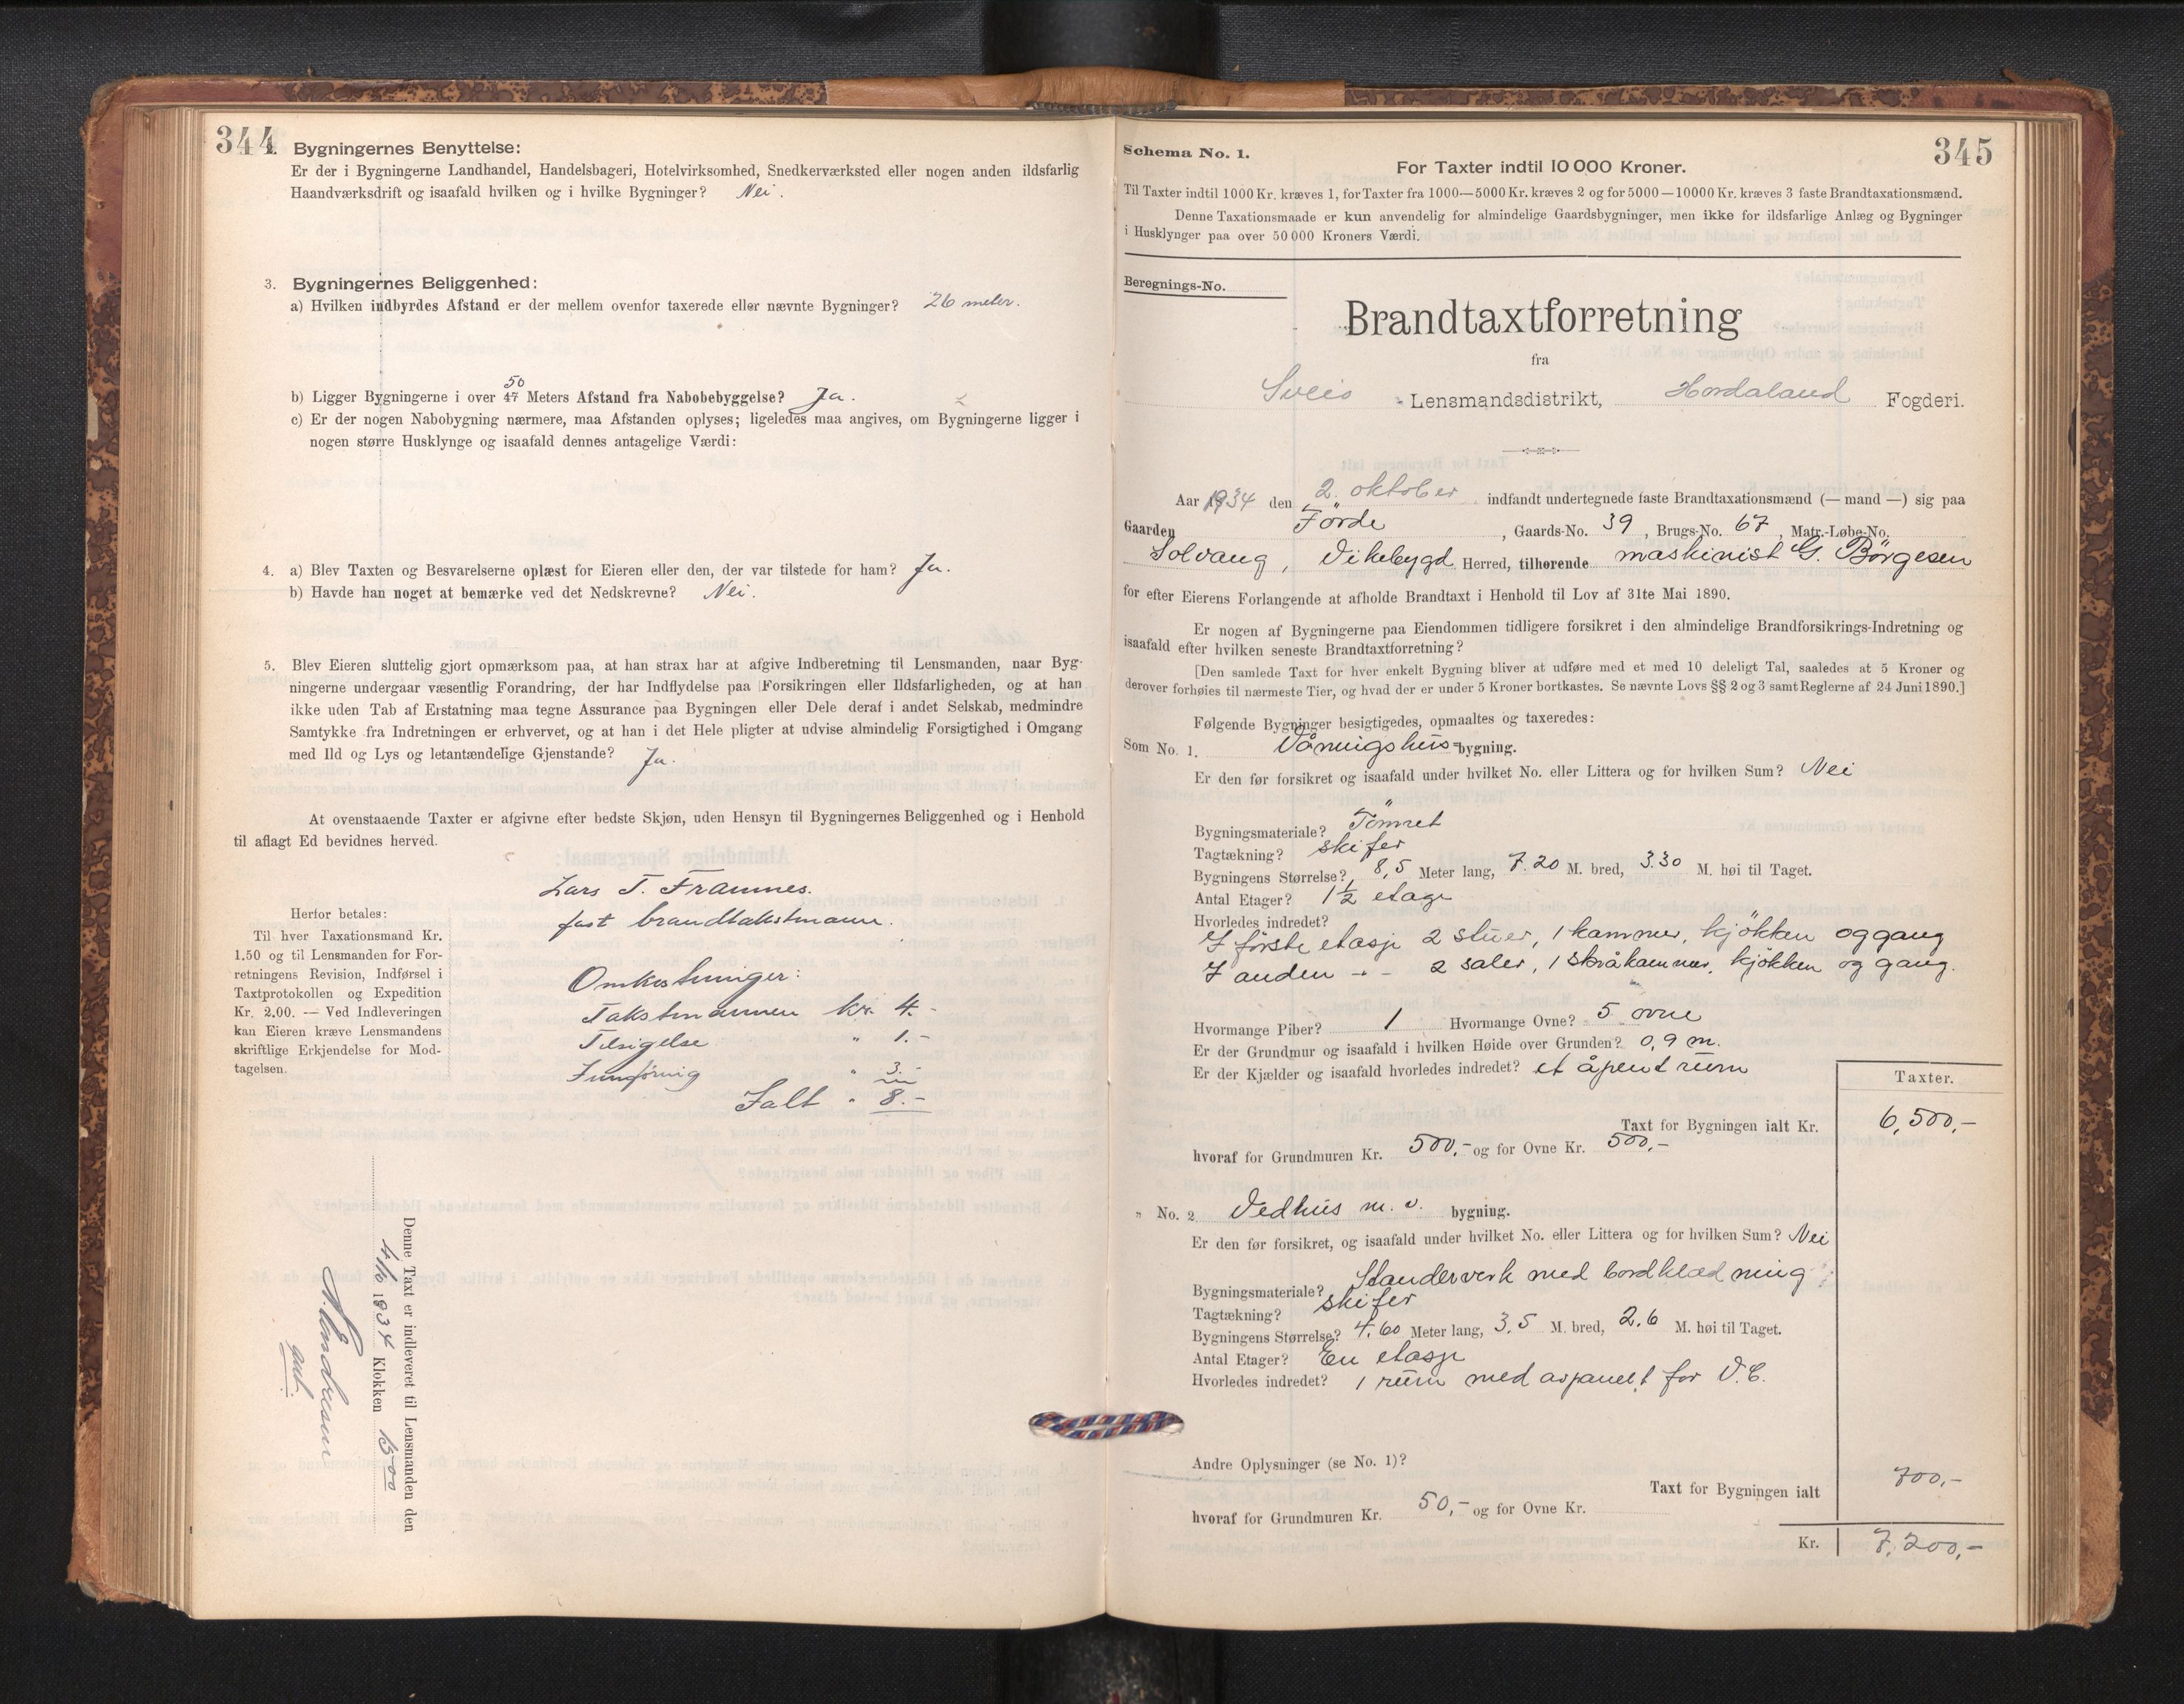 344
2. Bygningernes Benyttelse:
Er der i Bygningerne Landhandel, Handelsbageri, Hotelvirksomhed, Snedkerværksted eller nogen anden ildsfarlig
Haandværksdrift og isaafald hvilken og i hvilke Bygninger? Nei.
3. Bygningernes Beliggenhed:
a) Hvilken indbyrdes Afstand er der mellem ovenfor taxerede eller nævnte Bygninger? 26 meter.
50
b) Ligger Bygningerne i over 47 Meters Afstand fra Nabobebyggelse? Ja.
c) Er der nogen Nabobygning nærmere, maa Afstanden oplyses; ligeledes maa angives, om Bygningerne ligger i
nogen større Husklynge og isaafald dennes antagelige Værdi:
4. a) Blev Taxten og Besvarelserne oplæst for Eieren eller den, der var tilstede for ham? Ja.
b) Havde han noget at bemærke ved det Nedskrevne? Nei.
5. Blev Eieren sluttelig gjort opmærksom paa, at han strax har at afgive Indberetning til Lensmanden, naar Byg-
ningerne undergaar væsentlig Forandring, der har Indflydelse paa Forsikringen eller Ildsfarligheden, og at han
ikke uden Tab af Erstatning maa tegne Assurance paa Bygningen eller Dele deraf i andet Selskab, medmindre
Samtykke fra Indretningen er erhvervet, og at han i det Hele pligter at udvise almindelig Forsigtighed i Omgang
med Ild og Lys og letantændelige Gjenstande? Ja.
At ovenstaaende Taxter er afgivne efter bedste Skjøn, uden Hensyn til Bygningernes Beliggenhed og i Henhold
til aflagt Ed bevidnes herved.
Lars T. Framnes.
fast brandtakstmann.
Herfor betales:
Til hver Taxationsmand Kr.
1.50 og til Lensmanden for For-
retningens Revision, Indførsel i
Taxtprotokollen og Expedition
Kr. 2.00. — Ved Indleveringen
kan Eieren kræve Lensmandens
skriftlige Erkjendelse for Mod-
tagelsen.
Omkostninger:
Takstmannen kr. 4.-
Tilsigelse " 1.-
Innføring " 3.-
Ialt " 8.-
Denne Taxt er indleveret til Lensmanden den
4/10 1934 Klokken 15.00
N. Endresen
aut
345
Schema No. 1.
For Taxter indtil 10 000 Kroner.
Til Taxter indtil 1000 Kr. kræves 1, for Taxter fra 1000—5000 Kr. kræves 2 og for 5000—10000 Kr. kræves 3 faste Brandtaxationsmænd.
Denne Taxationsmaade er kun anvendelig for almindelige Gaardsbygninger, men ikke for ildsfarlige Anlæg og Bygninger
i Husklynger paa over 50 000 Kroners Værdi.
Beregnings-No.
Brandtaxtforretning
fra
Sveio Lensmandsdistrikt, Hordaland Fogderi.
Aar 1934 den 2. oktober indfandt undertegnede faste Brandtaxationsmænd (— mand —) sig paa
Gaarden Förde, Gaards-No. 39, Brugs-No. 67, Matr.-Løbe-No.
Solvang, Vikebygd Herred, tilhørende maskinist G. Börgesen
for efter Eierens Forlangende at afholde Brandtaxt i Henhold til Lov af 31te Mai 1890.
Er nogen af Bygningerne paa Eiendommen tidligere forsikret i den almindelige Brandforsikrings-Indretning og
isaafald efter hvilken seneste Brandtaxtforretning?
[Den samlede Taxt for hver enkelt Bygning bliver at udføre med et med 10 deleligt Tal, saaledes at 5 Kroner og
derover forhøies til nærmeste Tier, og hvad der er under 5 Kroner bortkastes. Se nævnte Lovs §§ 2 og 3 samt Reglerne af 24 Juni 1890.]
Følgende Bygninger besigtigedes, opmaaltes og taxeredes:
Som No. 1. Våningshus-bygning.
Er den før forsikret og isaafald under hvilket No. eller Littera og for hvilken Sum? Nei
Bygningsmateriale? Tömret
Tagtækning? skifer
Bygningens Størrelse? 8,5 Meter lang, 7.20 M. bred, 3.30 M. høi til Taget.
Antal Etager? 1½ etage
Hvorledes indredet?
I förste etasje 2 stuer, 1 kammer, kjökken og gang
I anden - - 2 saler, 1 skråkammer, kjökken og gang.
Hvormange Piber? 1 Hvormange Ovne? 5 ovne
Er der Grundmur og isaafald i hvilken Høide over Grunden? 0,9 m.
Er der Kjælder og isaafald hvorledes indredet? et åpent rum
Taxter.
Taxt for Bygningen ialt Kr. 6,500,-
hvoraf for Grundmuren Kr. 500,- og for Ovne Kr. 500,-
" No. 2 Vedhus m. v. bygning.
Er den før forsikret, og isaafald under hvilket No. eller Littera og for hvilken Sum? Nei
Bygningsmateriale? Standerverk med bordklædning
Tagtækning? skifer
Bygningens Størrelse? 4.60 Meter lang, 3.5 M. bred, 2.6 M. høi til Taget.
Antal Etager? En etasje
Hvorledes indredet? 1 rum med avpanelt for V.C.
Andre Oplysninger (se No. 1)?
Taxt for Bygningen ialt 700,-
hvoraf for Grundmuren Kr. 50,- og for Ovne Kr.
Kr. 7,200,-